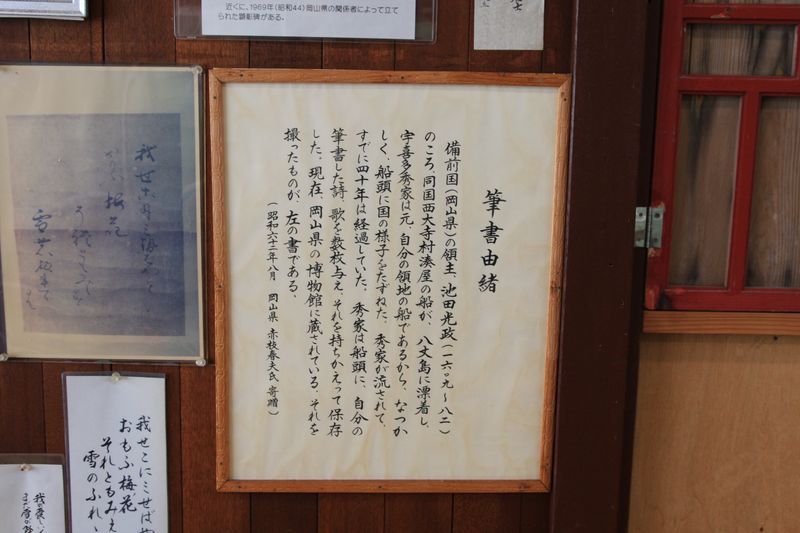 近くに、1969年(昭和44)岡山県の関係者によって立て
られた顕彰碑がある。
筆書由緒
備前国(岡山県)の領主、池田光政(一六〇九〜八二)
のころ、同国西大寺村湊屋の船が、八丈島に漂着し、
宇喜多秀家は元、自分の領地の船であるから、なつか
しく、船頭に国の様子をたずねた。秀家が流されて、
すでに四十年は経過していた。秀家は船頭に、自分の
筆書した詩、歌を数枚与え、それを持ちかえって保存
した。現在、岡山県の博物館に蔵されている。それを
撮ったものが、左の書である。
(昭和六十二年八月 岡山県 赤枝春夫氏 寄贈)
我せこにミせばや
おもふ梅花
それともみえ
雪のふれゝ